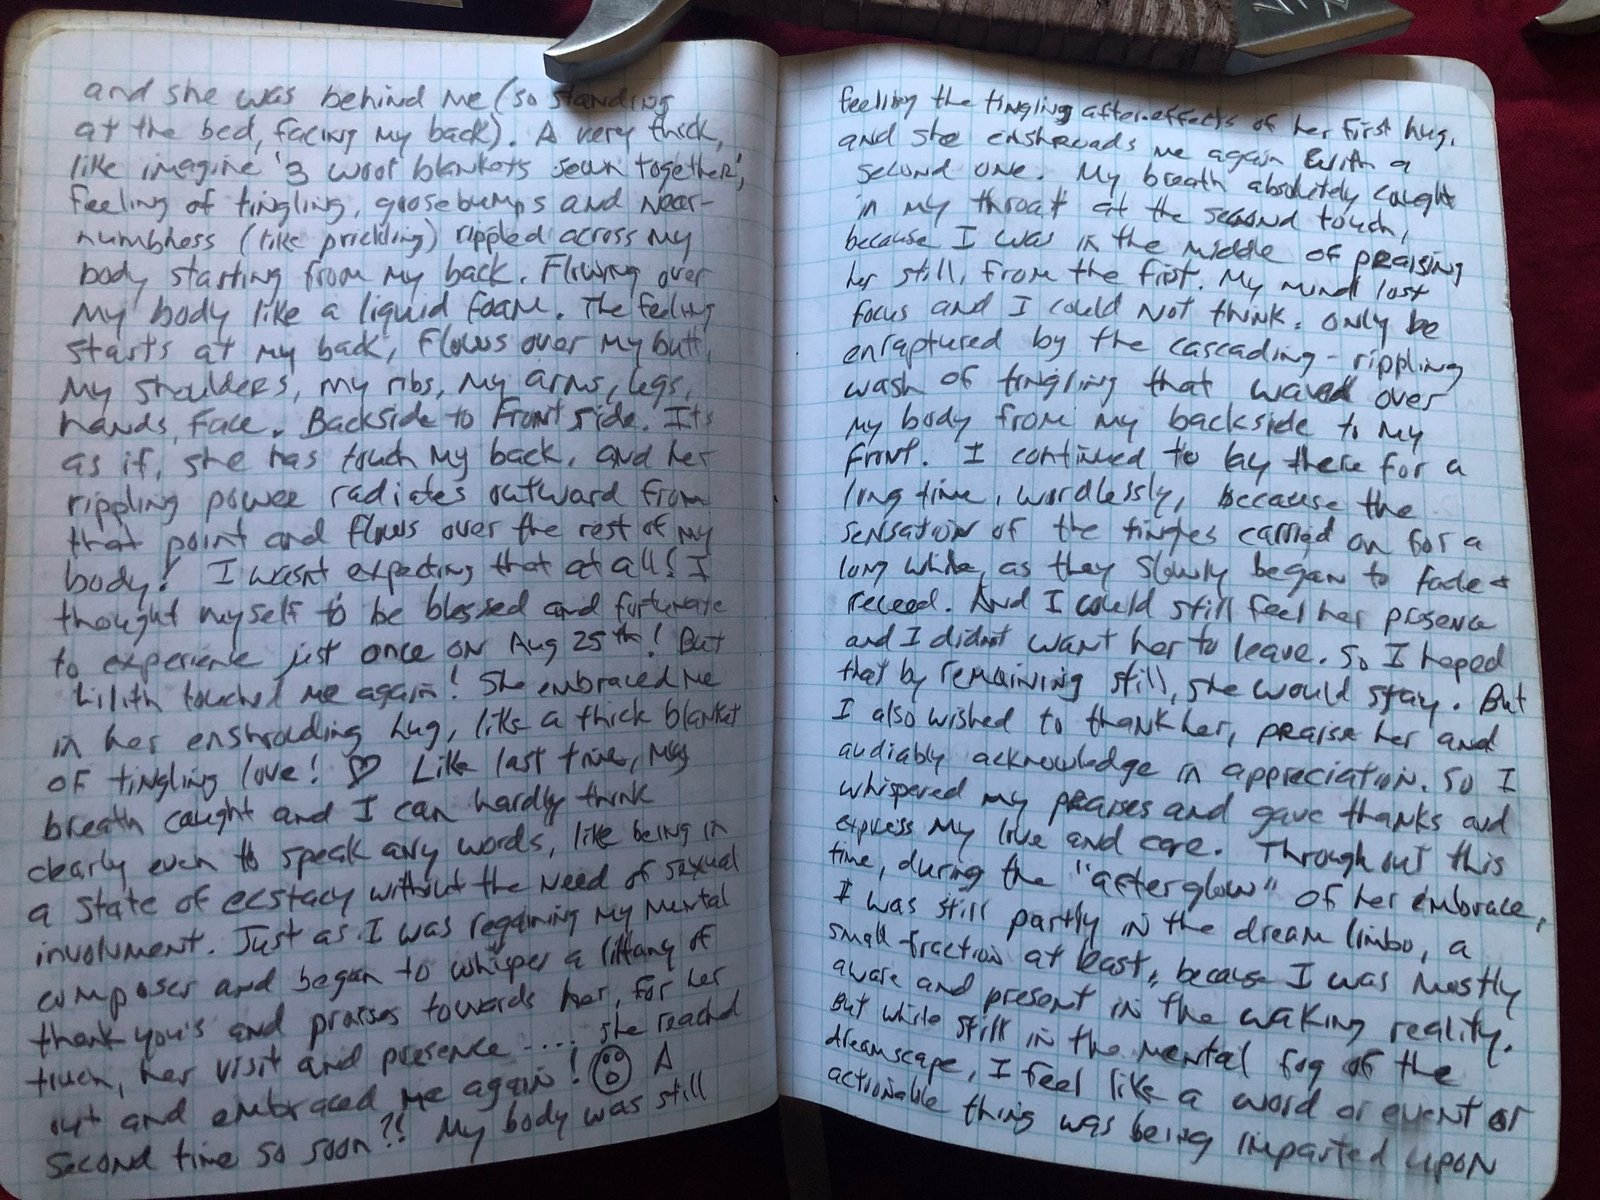 and she was behind me (so standing
at the bed, facing my back). A very thick,
like imagine '3 wool blankets sewn together',
feeling of tingling, goosebumps and near-
numbness (like prickling) rippled across my
body starting from my back. Flowing over
my body like a liquid foam. The feeling
starts at my back, flows over my butt,
my shoulders, my ribs, my arms, legs,
hands, face. Backside to Front side. Its
as if, she has touch my back, and her
rippling power radiates outward from
that point and flows over the rest of my
body! I wasnt expecting that at all! I
thought myself to be blessed and fortunate
to experience just once on Aug 25th! But
Lilith touched me again! She embraced me
in her enshrouding hug, like a thick blanket
of tingling love! ♡ Like last time, my
breath caught and I can hardly think
clearly even to speak any words, like being in
a state of ecstacy without the need of sexual
involvment. Just as I was regaining my mental
composer and began to whisper a littany of
thank you's and praises towards her, for her
touch, her visit and presence .... she reached
out and embraced me again! A
second time so soon?! My body was still
feeling the tingling after-effects of her first hug,
and she enshrouds me again with a
second one. My breath absolutely caught
in my throat at the second touch,
because I was in the middle of praising
her still, from the first. My mind lost
focus and I could not think. Only be
enraptured by the cascading-rippling
wash of tingling that waved over
my body from my backside to my
front. I continued to lay there for a
long time, wordlessly, because the
sensation of the tingles carried on for a
long while, as they slowly began to fade &
receed. And I could still feel her presence
and I didnt want her to leave. So I hoped
that by remaining still, she would stay. But
I also wished to thank her, praise her and
audiably acknowledge in appreciation. So I
whispered my praises and gave thanks and
express my love and care. Through out this
time, during the "afterglow" of her embrace,
I was still partly in the dream limbo, a
small fraction at least, because I was mostly
aware and present in the waking reality.
But while still in the mental fog of the
dreamscape, I feel like a word or event or
actionable thing was being imparted upon